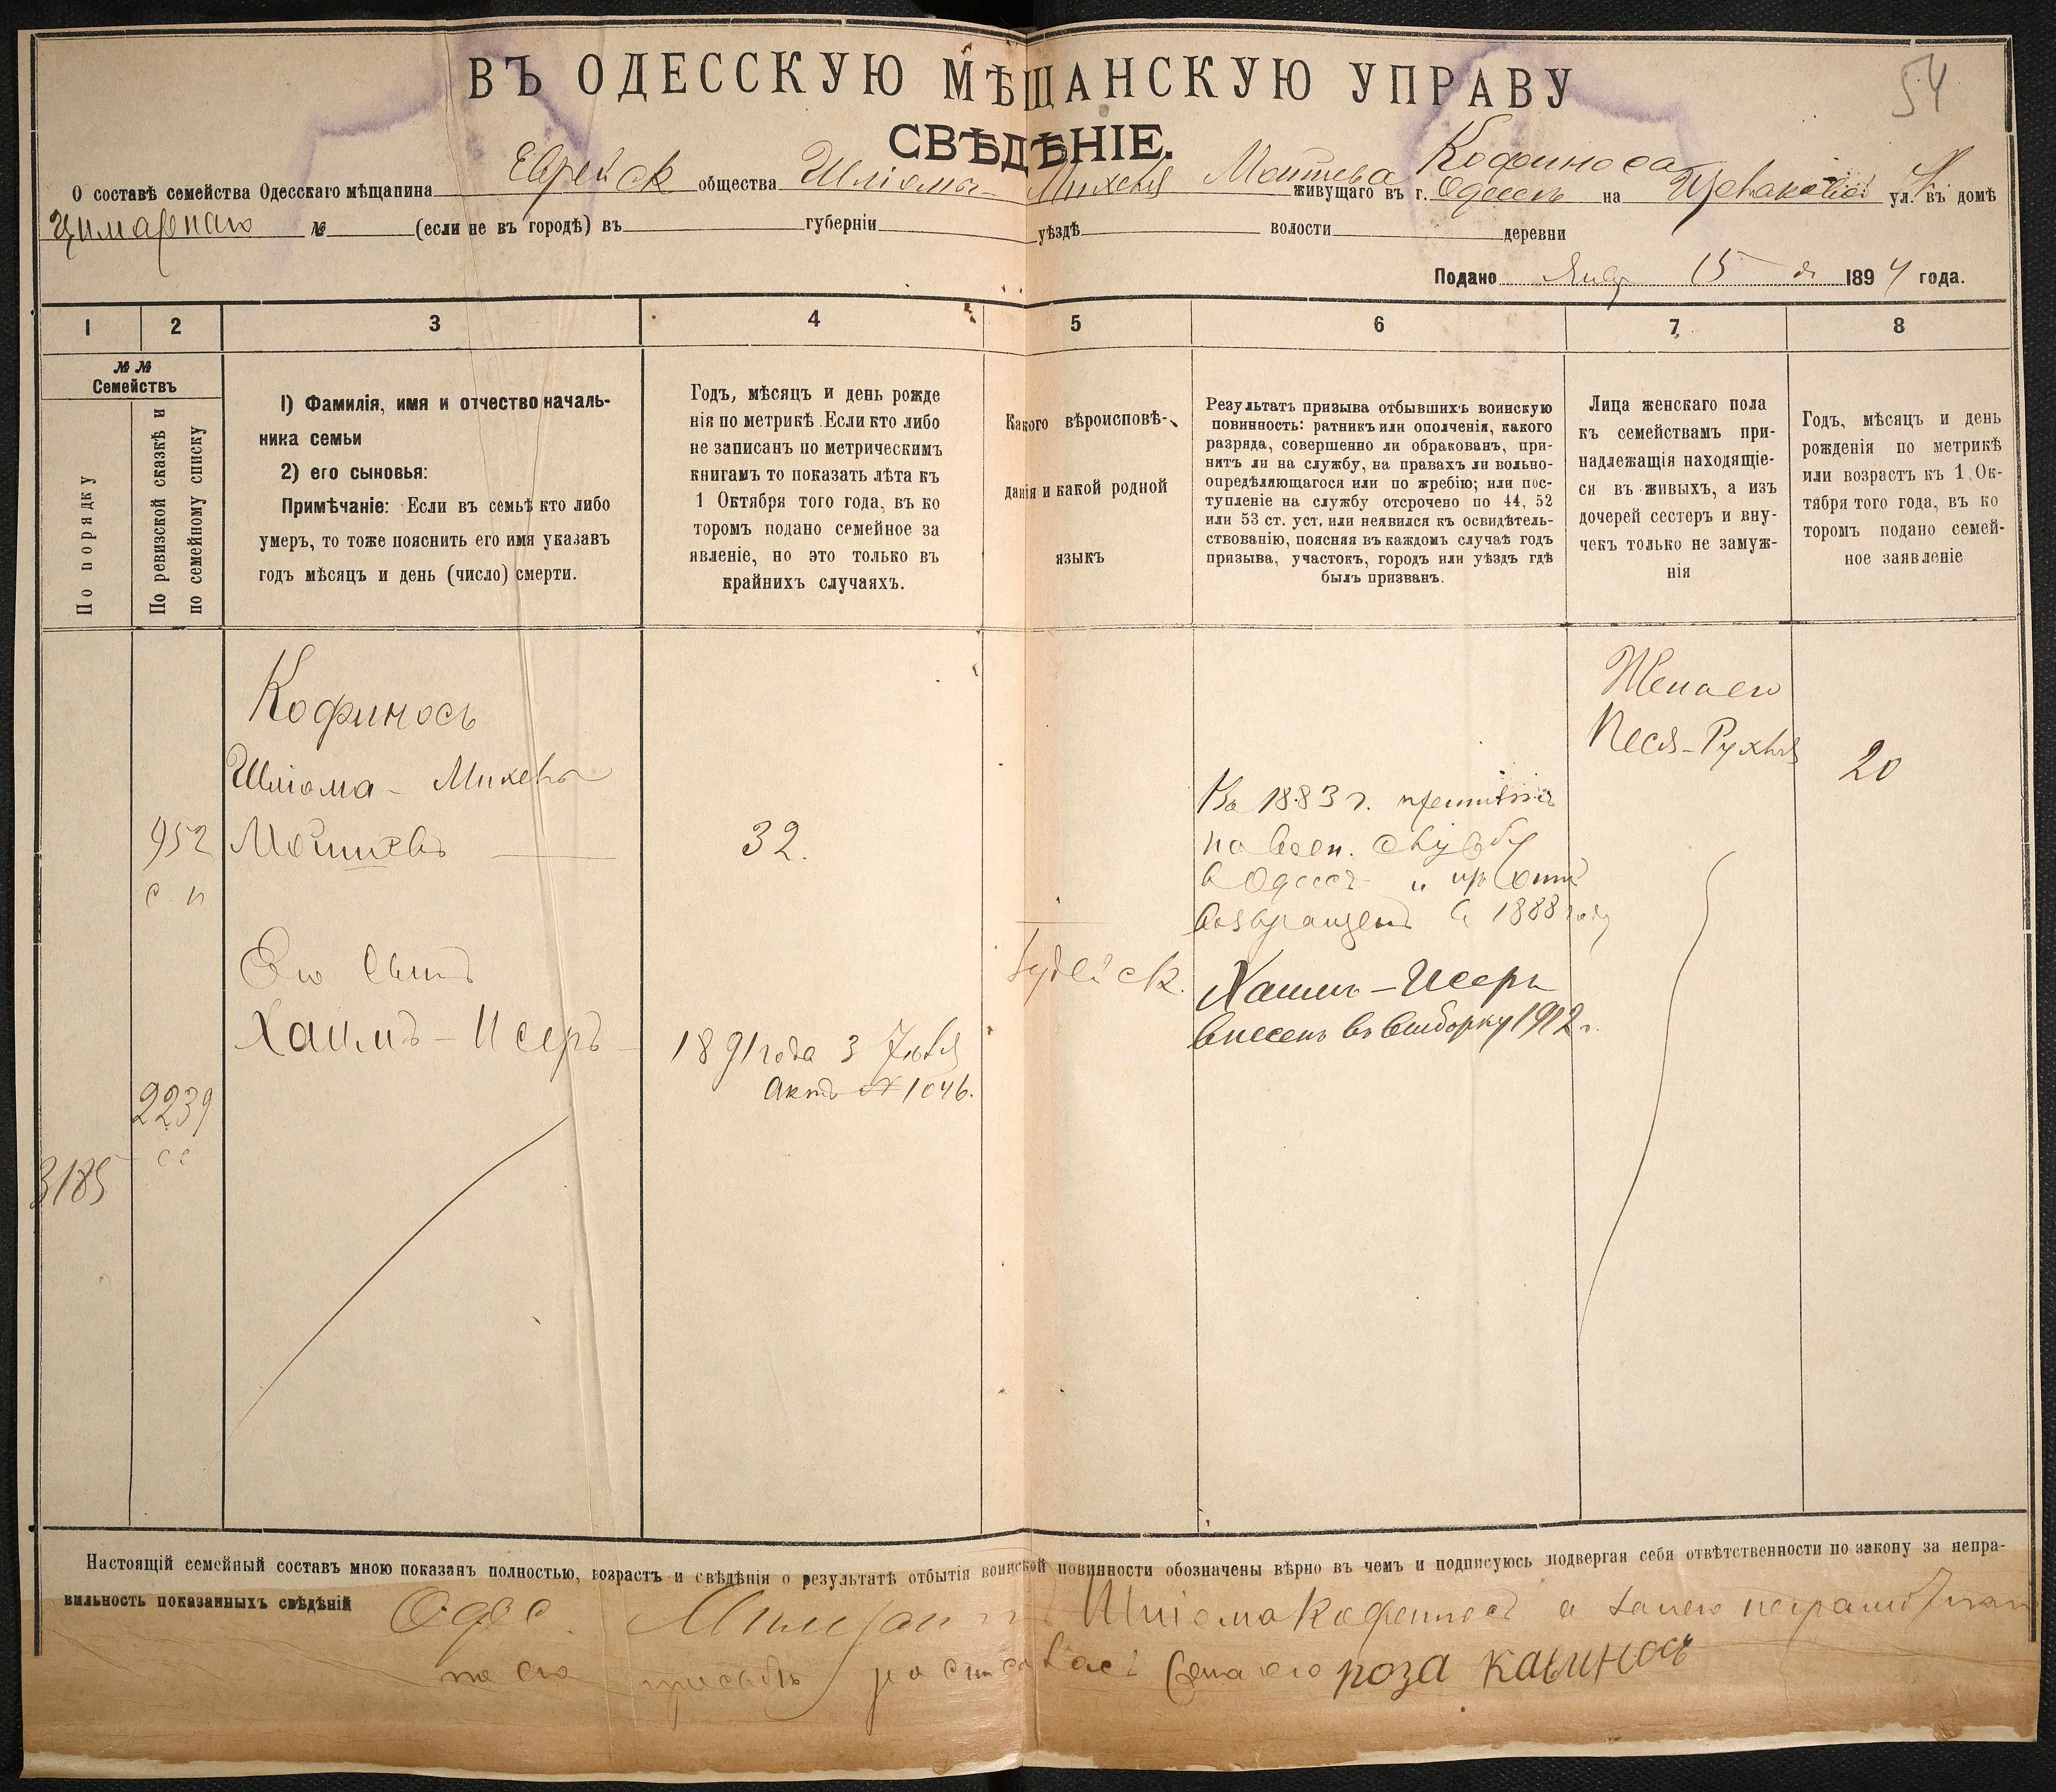 54
ВЪ ОДЕССКУЮ МѢЩАНСКУЮ УПРАВУ
СВѢДѢНІЕ.
О составѣ семейства Одесскаго мѣщанина Еврейск общества Шліомы - Михеля Моти Кофиноса живущаго въ г. Одессѣ на ул. въ домѣ
№ (если не въ городѣ) въ губерніи уѣздѣ волости деревни
Подано Янв 15 д 1894 года.
1 2 3 4 5 6 7 8
№№ Семействъ
По порядку
По ревизской сказкѣ и по семейному списку
1) Фамилія, имя и отчество началь-
ника семьи
2) его сыновья:
Примѣчаніе: Если въ семьѣ кто либо
умеръ, то тоже пояснить его имя указавъ
годъ мѣсяцъ и день (число) смерти.
Годъ, мѣсяцъ и день рожде
нія по метрикѣ. Если кто либо
не записанъ по метрическимъ
книгамъ то показать лѣта къ
1 Октября того года, въ ко
торомъ подано семейное за
явленіе, но это только въ
крайнихъ случаяхъ.
Какого вѣроисповѣ-
данія и какой родной
языкъ
Результатъ призыва отбывшихъ воинскую
повинность: ратникъ или ополченія, какого
разряда, совершенно ли обракованъ, при-
нятъ ли на службу, на правахъ ли вольно-
опредѣляющагося или по жребію; или пос-
тупленіе на службу отсрочено по 44, 52
или 53 ст. уст, или неявился къ освидѣтель-
ствованію, поясняя въ каждомъ случаѣ годъ
призыва, участокъ, городъ или уѣздъ гдѣ
былъ призванъ.
Лица женскаго пола
къ семействамъ при-
надлежащія находящіе-
ся въ живыхъ, а изъ
дочерей сестеръ и вну-
чекъ только не замуж-
нія
Годъ, мѣсяцъ и день
рожденія по метрикѣ
или возрастъ къ 1 Ок-
тября того года, въ ко
торомъ подано семей-
ное заявленіе
Кофиносъ
Шліома - Михель
952
с п
32.
Его сынъ
Хаимъ - Исеръ
1891 года 3 Іюля
Актъ № 1046.
2239
с с
3185
Іудейск.
Въ 1883 г.
на воен. службу
в Одессѣ и
возвращенъ въ 1888 году
Хаимъ - Исеръ
внесенъ въ выборку 1912 г.
Жена его
Песя - Рухля
20
Настоящій семейный составъ мною показанъ полностью, возрастъ и свѣдѣнія о результатѣ отбытія воинской повинности обозначены вѣрно въ чемъ и подписуюсь подвергая себя отвѣтственности по закону за непра-
вильность показанныхъ свѣдѣній Одес. Мѣщанинъ Шліома Кофиносъ а за него неграмотнаго
по его просьбѣ росписалась жена его роза кавиносъ